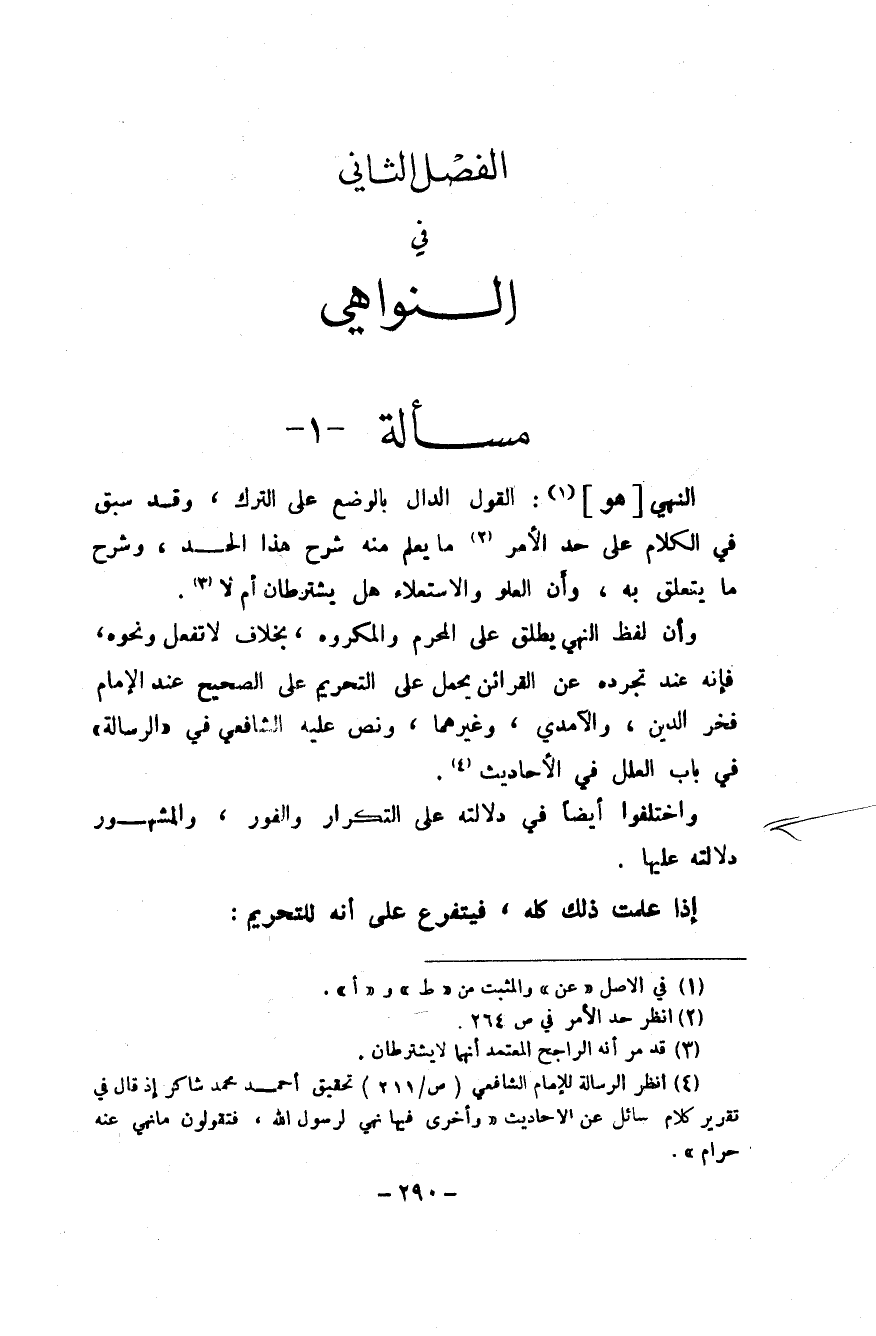 الفصل الثاني
في
النواهي
مسألة -١-
النهي [ هو ] (١) : القول الدال بالوضع على الترك ، وقد سبق
في الكلام على حد الأمر (٢) ما يعلم منه شرح هذا الحد ، وشرح
ما يتعلق به ، وأن العلو والاستعلاء هل يشترطان أم لا (٣) .
وأن لفظ النهي يطلق على المحرم والمكروه ، بخلاف لاتفعل ونحوه،
فإنه عند تجرده عن القرائن يحمل على التحريم على الصحيح عند الإمام
فخر الدين ، والآمدي ، وغيرهما ، ونص عليه الشافعي في «الرسالة»
في باب العلل في الأحاديث (٤) .
واختلفوا أيضاً في دلالته على التكرار والفور ، والمشهور
دلالته عليها .
إذا علمت ذلك كله ، فيتفرع على أنه للتحريم :
(١) في الاصل « عن » والمثبت من « ط » و « أ » .
(٢) انظر حد الأمر في ص ٢٦٤ .
(٣) قد مر أنه الراجح المعتمد أنها لايشترطان .
(٤) أنظر الرسالة للإمام الشافعي ( ص/٢١١ ) تحقيق أحمد محمد شاكر إذ قال في
تقرير كلام سائل عن الاحاديث « وأخرى فيها نهي لرسول الله ، فتقولون مانهي عنه
حرام » .
- ٢٩٠ -